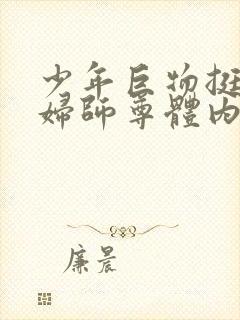 少年巨物挺
婦師尊體內
廉晨